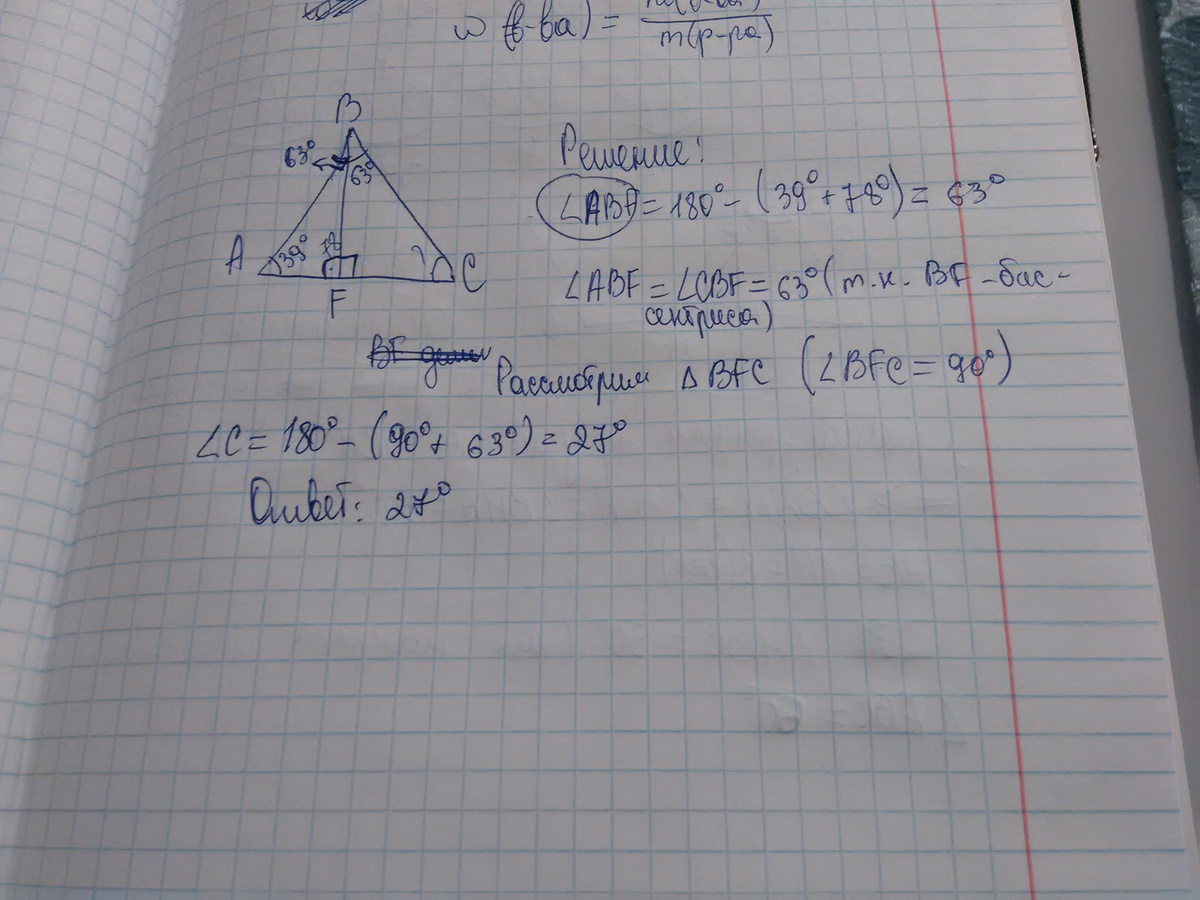 ω(б-ва) =
m(р-ра)
B
63°
63°
A
39°
78
?
C
F
Решение:
∠ABF = 180° - (39° + 78°) = 63°
∠ABF = ∠CBF = 63° (т.к. BF - бис-
сектриса)
Рассмотрим △ BFC (∠BFC = 90°)
∠C = 180° - (90° + 63°) = 27°
Ответ: 27°